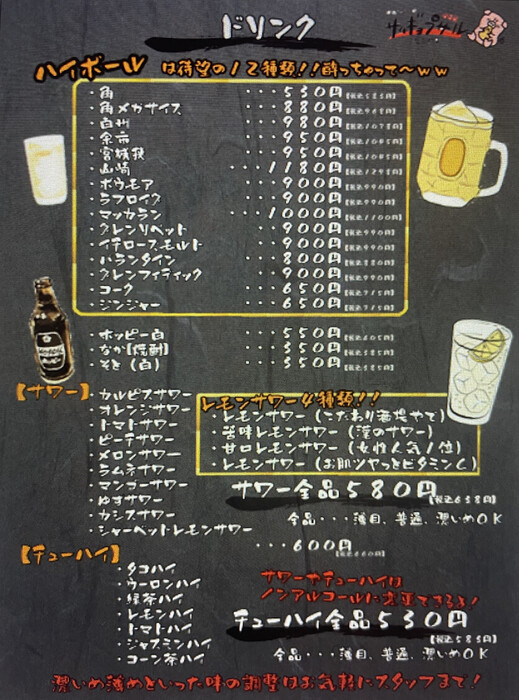 ドリンク
サッポロブグール
ハイボール は待望の12種類!!酔っちゃって〜ww
・角 ・・・530円【税込583円】
・角メガサイズ ・・・880円【税込968円】
・白州 ・・・980円【税込1078円】
・余市 ・・・950円【税込1045円】
・宮城狭 ・・・950円【税込1045円】
・山崎 ・・・1180円【税込1298円】
・ボウモア ・・・900円【税込990円】
・ラフロイグ ・・・900円【税込990円】
・マッカラン ・・・1000円【税込1100円】
・グレンリベット ・・・900円【税込990円】
・イチローズモルト ・・・900円【税込990円】
・バランタイン ・・・800円【税込880円】
・グレンフィディック ・・・900円【税込990円】
・コーク ・・・650円【税込715円】
・ジンジャー ・・・650円【税込715円】
・ホッピー白 ・・・550円【税込605円】
・なか【焼酎】 ・・・350円【税込385円】
・そと(白) ・・・350円【税込385円】
【サワー】
・カルピスサワー
・オレンジサワー
・トマトサワー
・ピーチサワー
・メロンサワー
・ラムネサワー
・マンゴーサワー
・ゆずサワー
・カシスサワー
・シャーベットレモンサワー ・・・600円【税込660円】
レモンサワー4種類!!
・レモンサワー(こだわり酒場やで)
・苦味レモンサワー(漢のサワー)
・甘口レモンサワー(女性人気1位)
・レモンサワー(お肌ツヤっとビタミンC)
サワー全品580円【税込638円】
全品・・・薄目、普通、濃いめOK
【チューハイ】
・タコハイ
・ウーロンハイ
・緑茶ハイ
・レモンハイ
・トマトハイ
・ジャスミンハイ
・コーン茶ハイ
サワーやチューハイは
ノンアルコールに変更できるよ!
チューハイ全品530円【税込583円】
全品・・・薄目、普通、濃いめOK
濃いめ薄めといった味の調整はお気軽にスタッフまで!